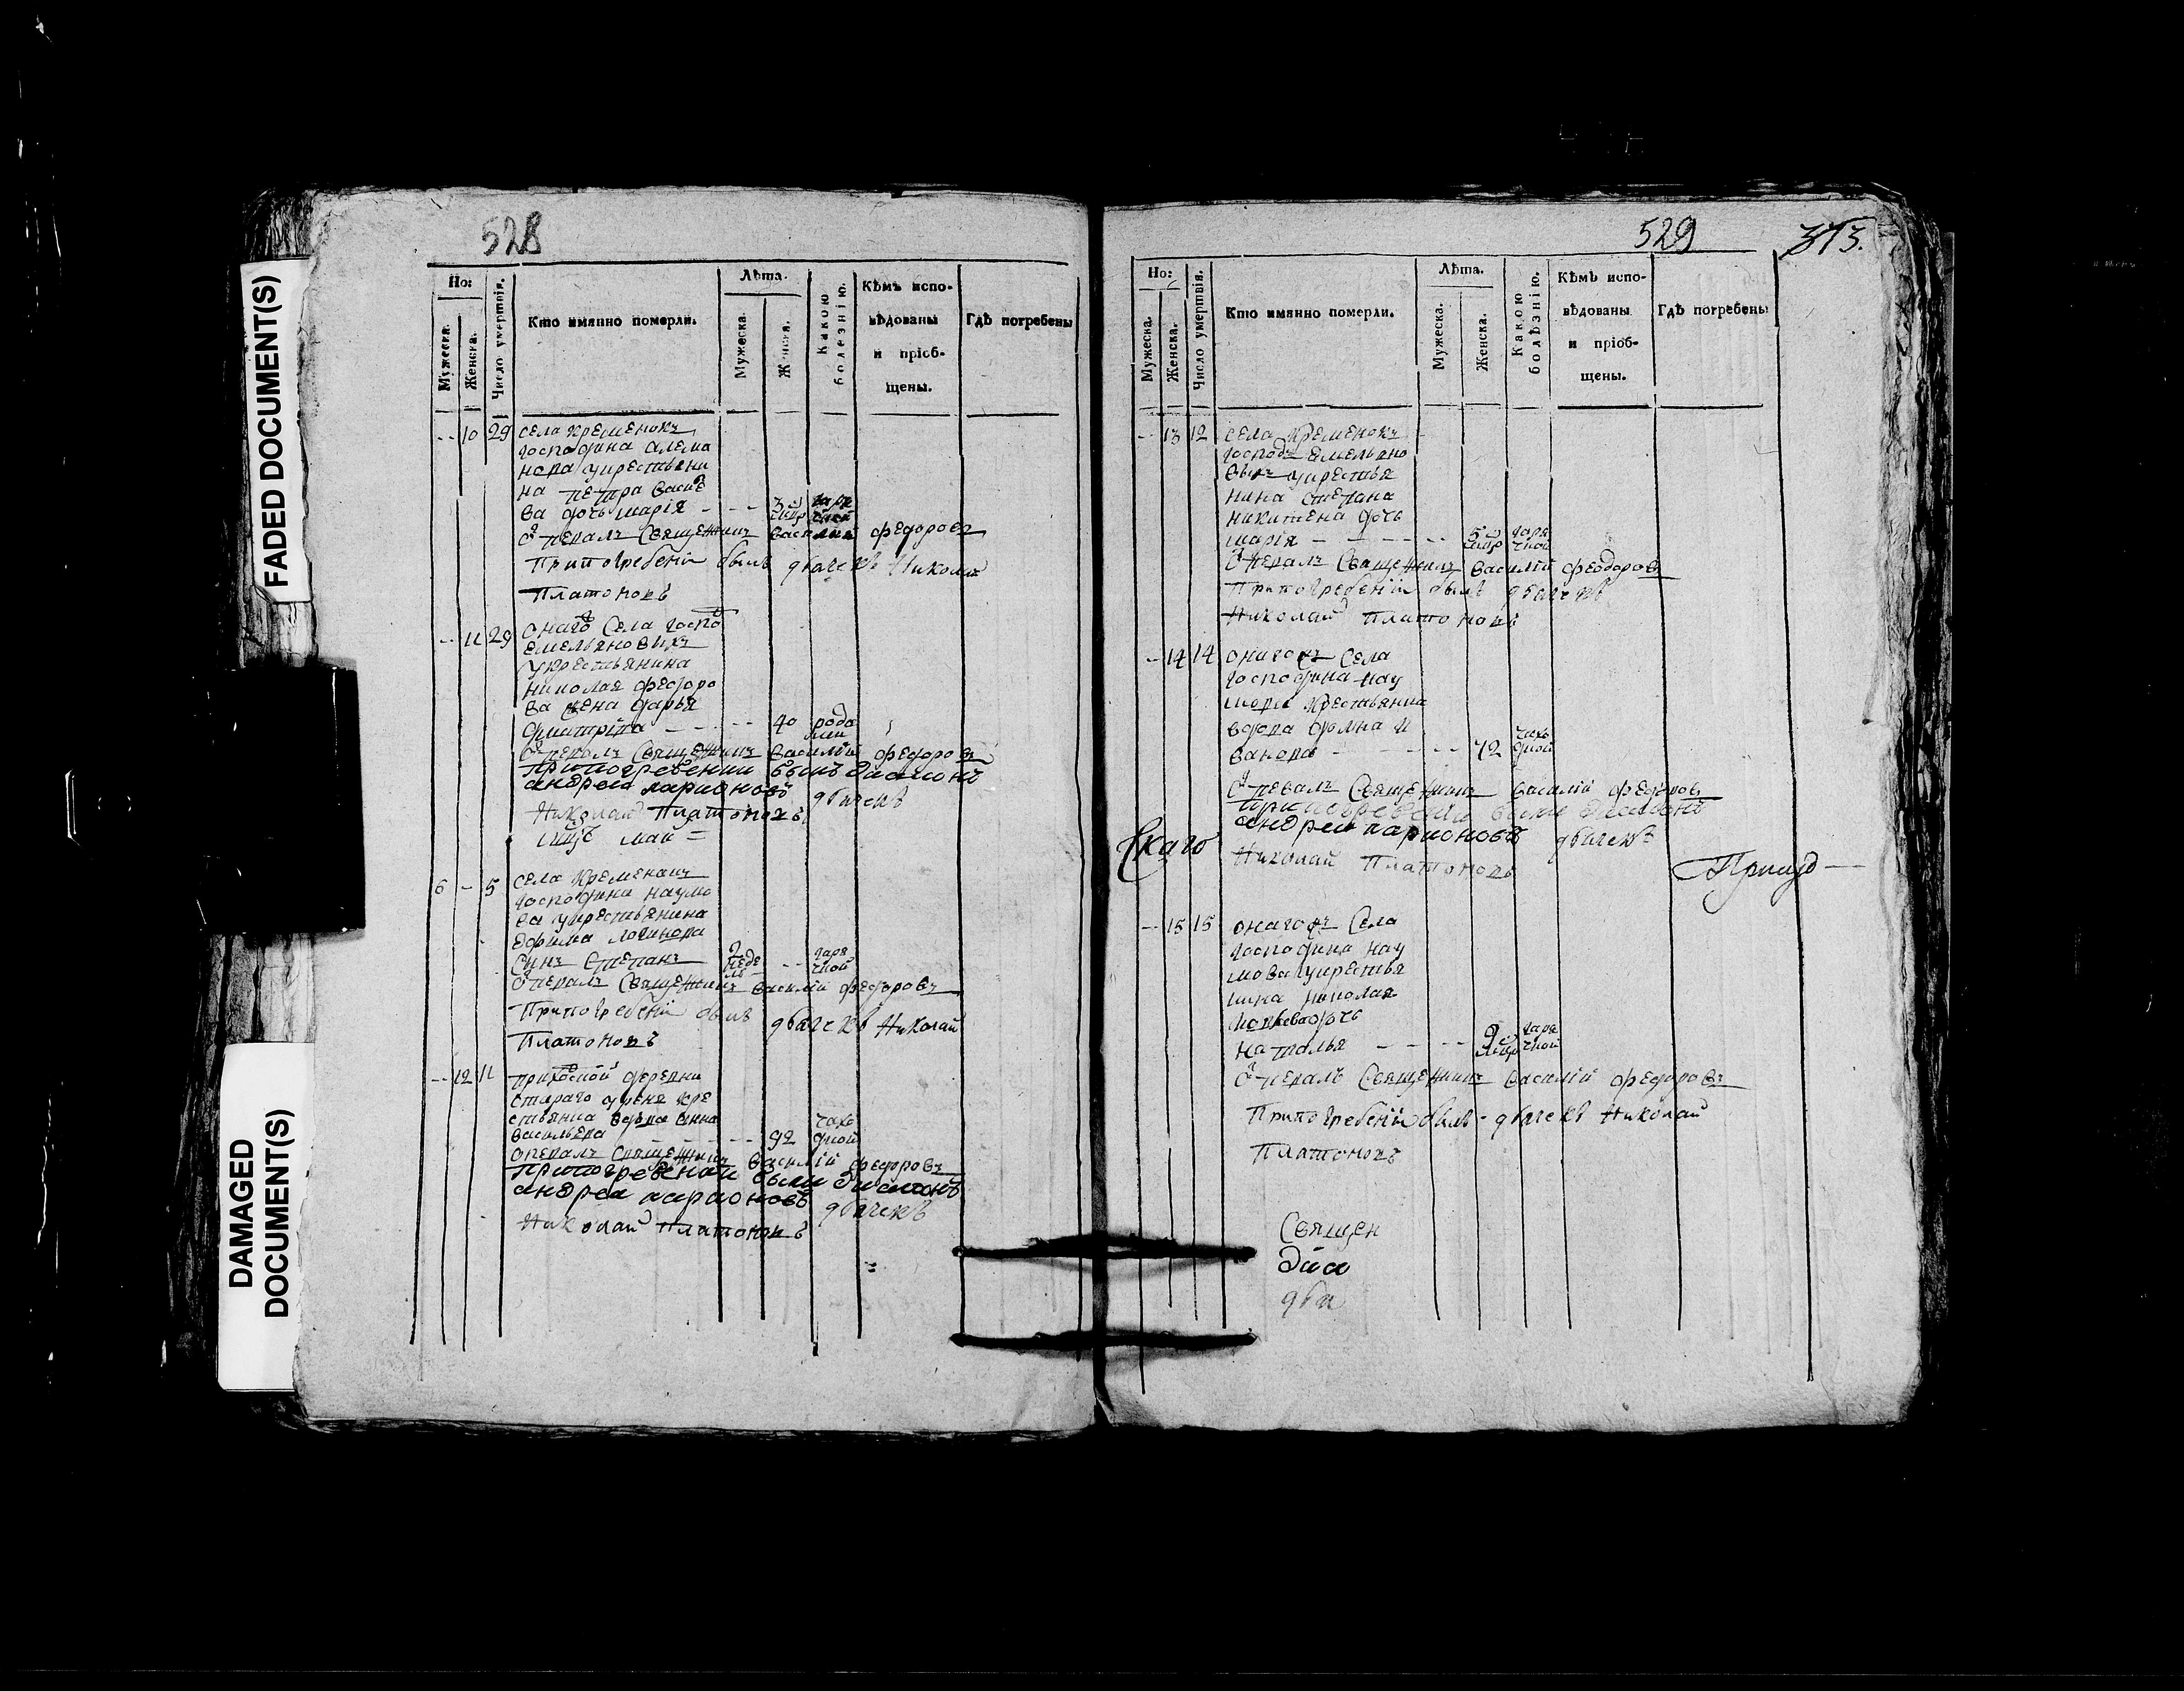 FADED DOCUMENT(S)
DAMAGED
DOCUMENT(S)
528
Но:
Мужеска.
Женска.
Число умертвія.
Кто имянно померли.
Лѣта.
Мужеска.
Женска.
Какою
болезнію.
Кѣмъ испо-
вѣдованы
и пріоб-
щены.
Гдѣ погребены
-- 10 29 села Кременокъ
господина
на петра васи
ва дочь марія - - - 3 горя
чкой
отпевалъ Священникъ василий федоровъ
Припогребении былъ дьячекъ Николай
Платоновъ
-- 11 29 онаго села госпо
емельяновыхъ
крестьянина
николая федоро
ва жена дарья
дмитріева - - - 40 рода
ми
отпевалъ Священникъ василий федоровъ
Припогребении былъ диаконъ
андреи ларионовъ дьячекъ
Николай Платоновъ
май =
6 - 5 села Кременакъ
господина наумо
ва крестьянина
ефима логинова
сынъ Степанъ 2 неде
ль - - горя
чкой
отпевалъ Священникъ василий федоровъ
Припогребении былъ дьячекъ Николай
Платоновъ
-- 12 11 приходской деревни
стараго уреня кре
стьянка вдова анна
васильева - - - 92 чахо
дкой
опевалъ Священникъ василий федоровъ
Припогребении были диаконъ
андреи ларионовъ дьячекъ
Николай Платоновъ
529
373.
Но:
Мужеска.
Женска.
Число умертвія.
Кто имянно померли.
Лѣта.
Мужеска.
Женска.
Какою
болѣзнію.
Кѣмъ испо-
вѣдованы
и пріоб-
щены.
Гдѣ погребены
-- 13 12 села Кременокъ
господъ емельяно
выхъ крестья
нина степана
никитена дочь
марія - - - 5 горя
чкой
отпевалъ Священникъ василий феодоровъ
Припогребении былъ дьячекъ
Николай Платоновъ
-- 14 14 онагожъ села
господина нау
мова крестьянка
вдова домна и
ванова - - - 72 чахо
дкой
отпевалъ Священникъ василий федоровъ
припогребении были диаконъ
андреи ларионовъ дьячекъ
Николай Платоновъ
скаго
-- 15 15 онагожъ села
господина нау
мова крестья
нина николая
дочь
наталья - - - 9 горя
чкой
отпевалъ Священникъ василий федоровъ
Припогребении былъ - дьячекъ Николай
Платоновъ
Священ
Диа
дья